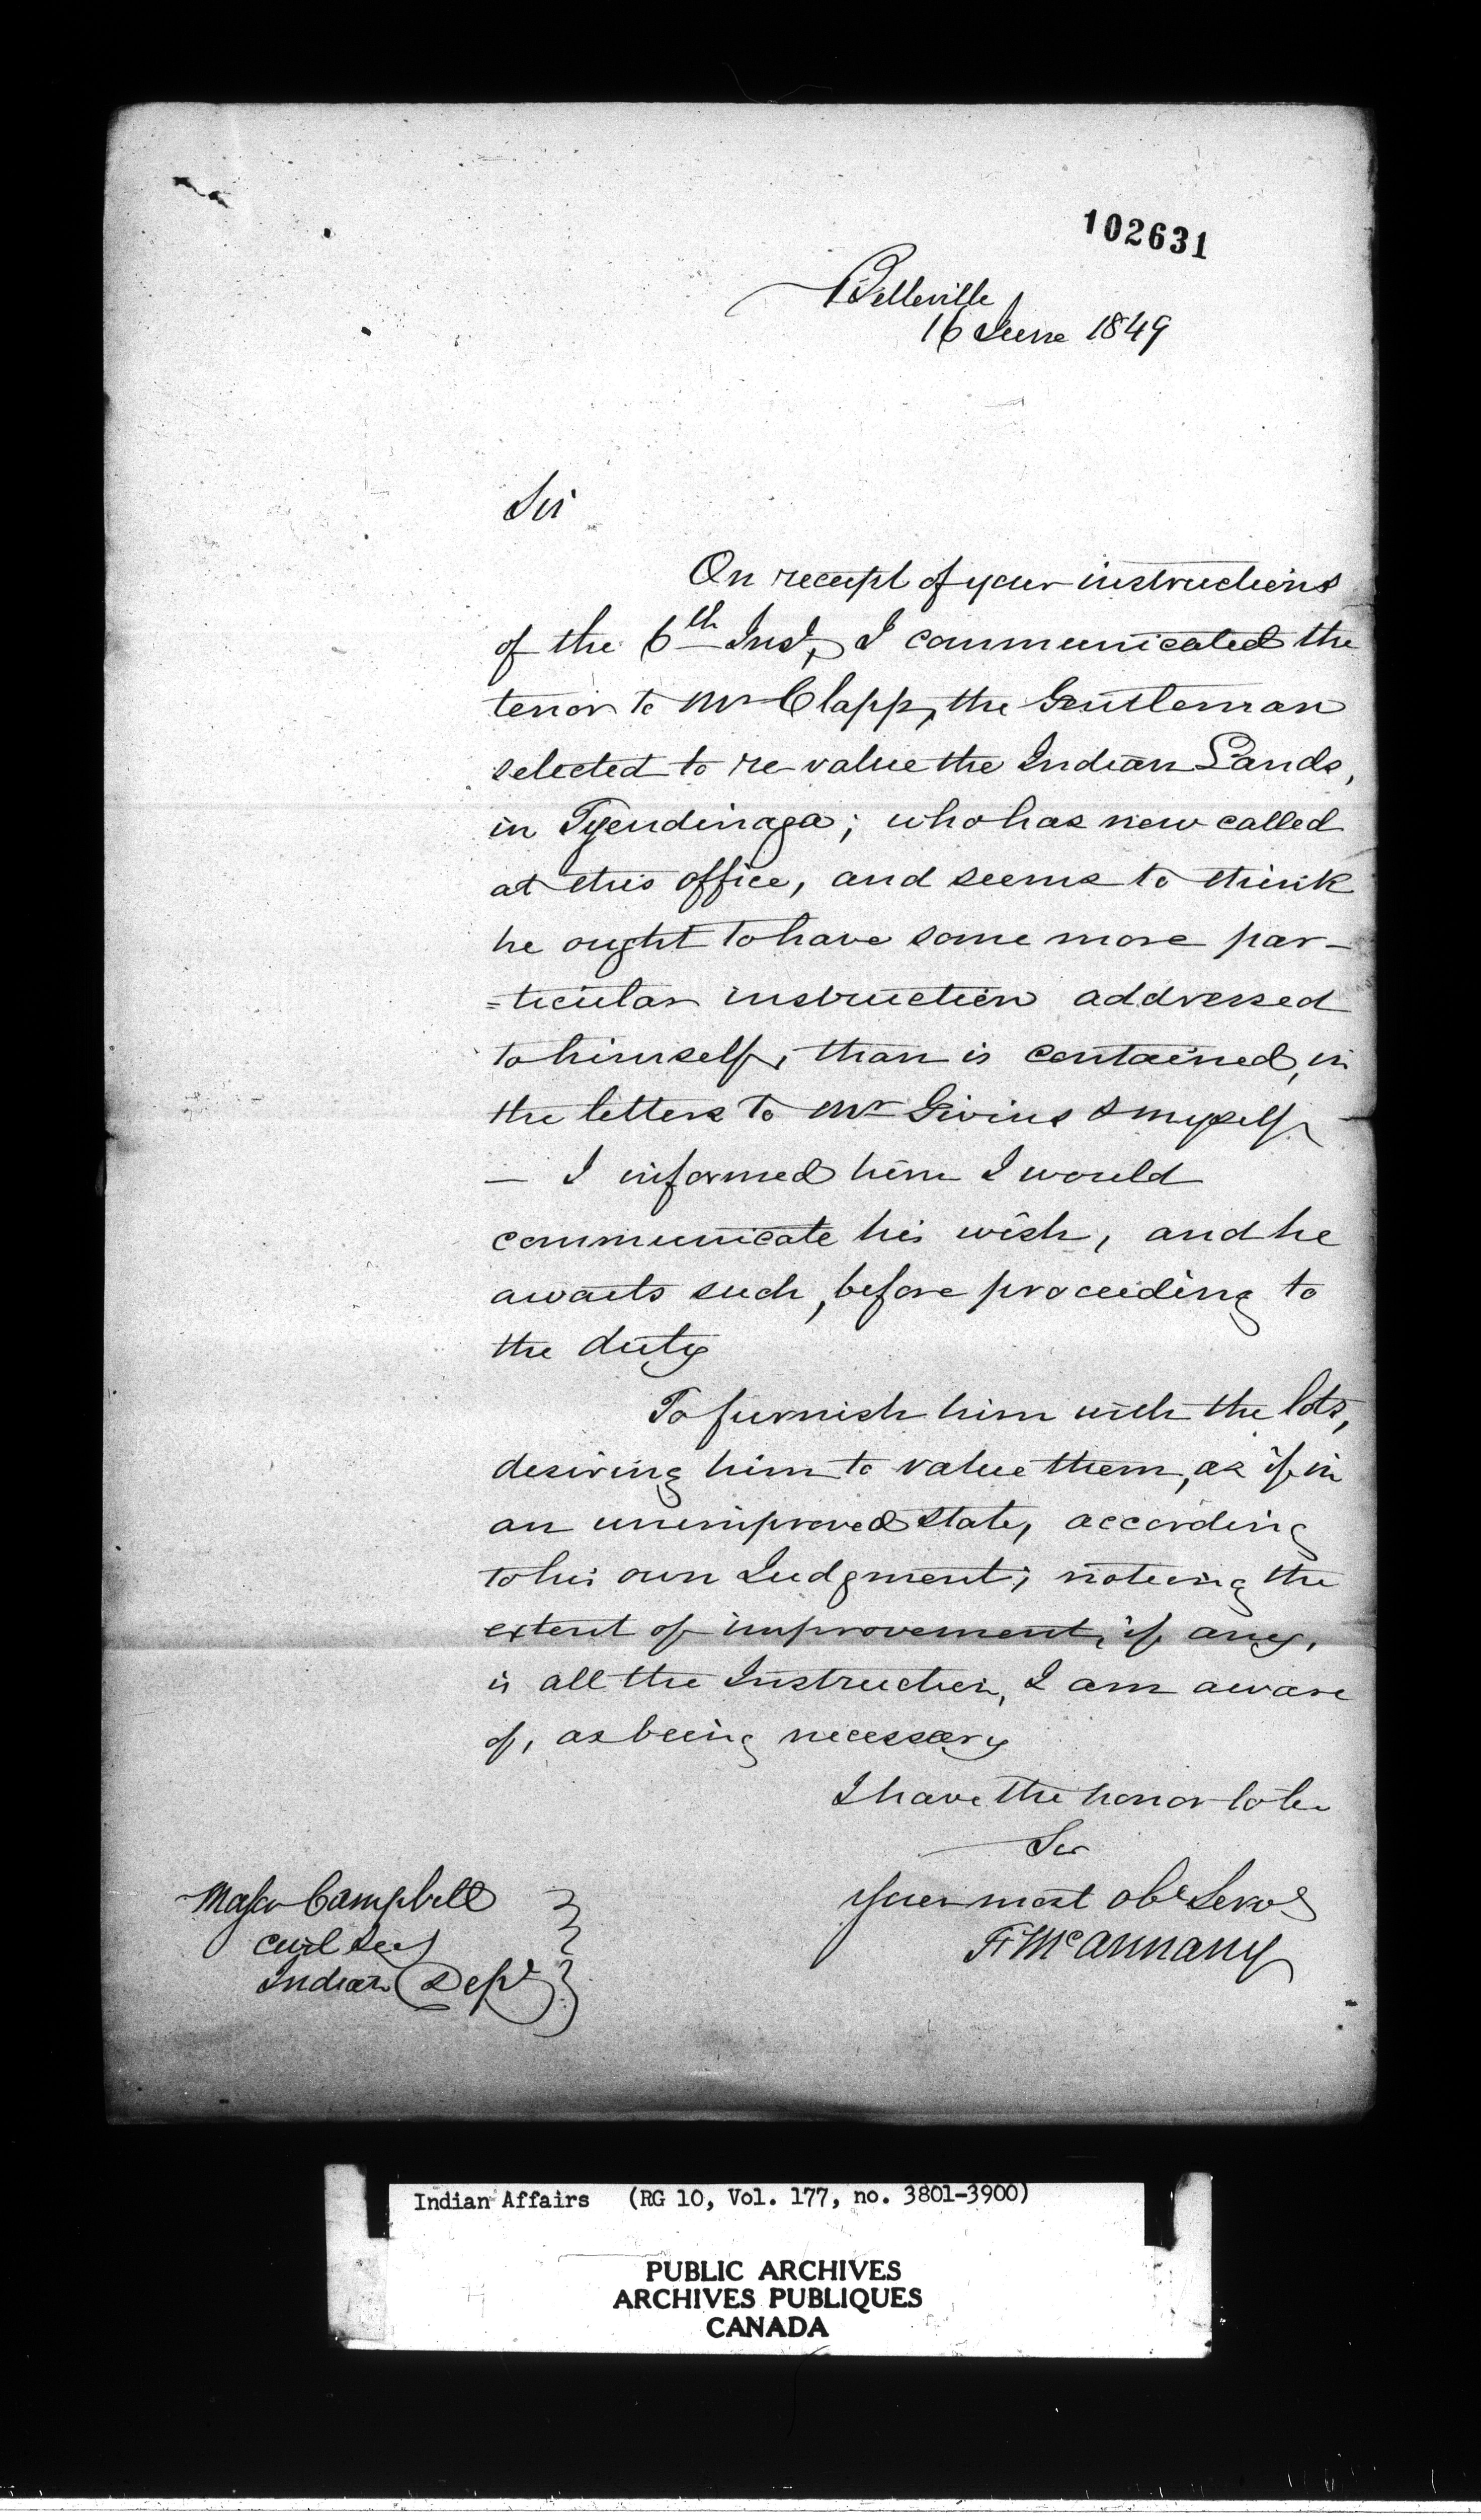 102631
Belleville
16 June 1849
Sir
On receipt of your instructions
of the 6th Inst, I communicated the
tenor to Mr Clapp, the Gentleman
selected to re-value the Indian Lands,
in Tyendinaga; who has now called
at this office, and seems to think
he ought to have some more par-
=ticular instruction addressed
to himself, than is contained, in
the letters to Mr Givins & myself
— I informed him I would
communicate his wish, and he
awaits such, before proceeding to
the duty
To furnish him with the lots,
desiring him to value them, as if in
an unimproved state, according
to his own Judgment; noteing the
extent of improvement, if any,
is all the Instruction, I am aware
of, as being necessary
I have the honor to be
Sir
Your most obt Servt
F. McAnnany
Major Campbell
Civil Secy
Indian Dept
Indian Affairs (RG 10, Vol. 177, no. 3801-3900)
PUBLIC ARCHIVES
ARCHIVES PUBLIQUES
CANADA